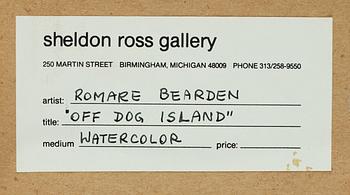 sheldon ross gallery
250 MARTIN STREET BIRMINGHAM, MICHIGAN 48009 PHONE 313/258-9550
artist: ROMARE BEARDEN
title: "OFF DOG ISLAND"
medium WATERCOLOR price: